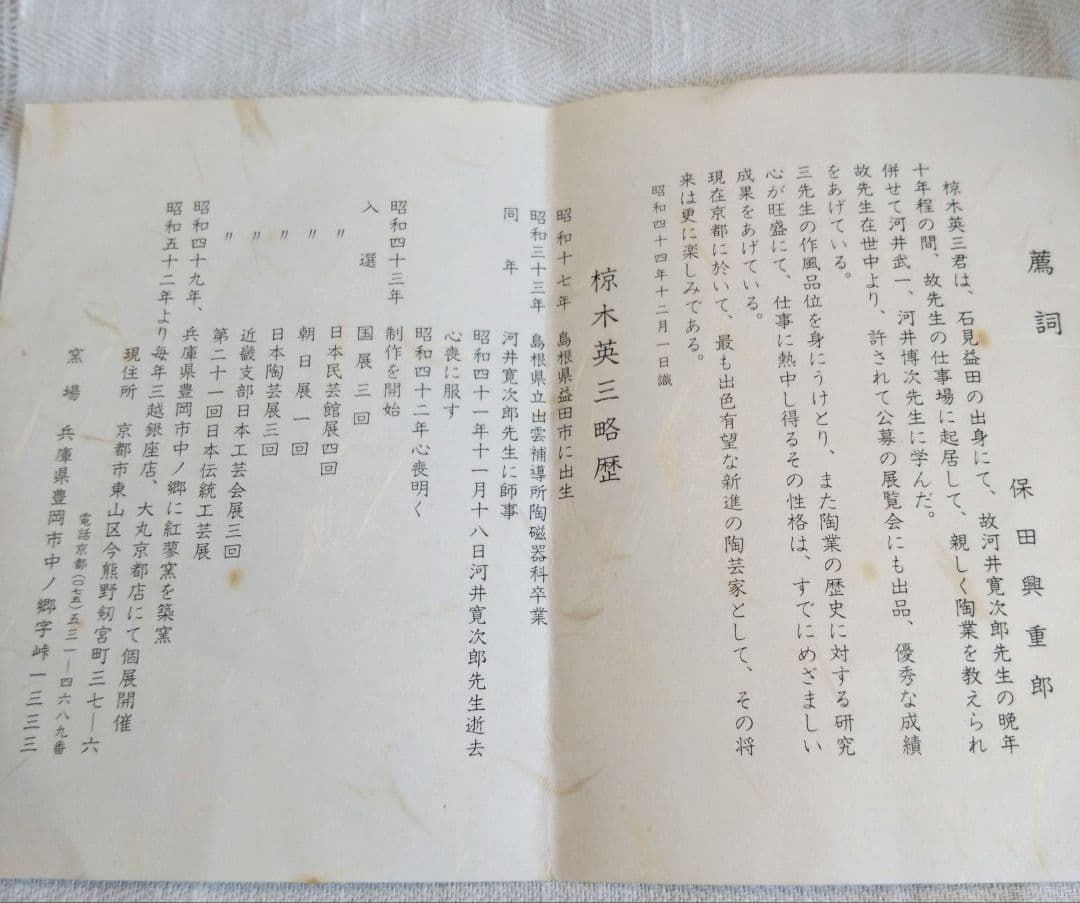 薦詞
保田興重郎
椋木英三君は、石見益田の出身にて、故河井寛次郎先生の晩年
十年程の間、故先生の仕事場に起居して、親しく陶業を教えられ
併せて河井武一、河井博次先生に学んだ。
故先生在世中より、許されて公募の展覧会にも出品、優秀な成績
をあげている。
三先生の作風品位を身にうけとり、また陶業の歴史に対する研究
心が旺盛にて、仕事に熱中し得るその性格は、すでにめざましい
成果をあげている。
現在京都に於いて、最も出色有望な新進の陶芸家として、その将
来は更に楽しみである。
昭和四十四年十二月一日識
椋木英三略歴
昭和十七年 島根県益田市に出生
昭和三十三年 島根県立出雲補導所陶磁器科卒業
同年 河井寛次郎先生に師事
昭和四十一年十一月十八日河井寛次郎先生逝去
心喪に服す
昭和四十二年心喪明く
昭和四十三年 制作を開始
入選 国展三回
〃 日本民芸館展四回
〃 朝日展一回
〃 日本陶芸展三回
〃 近畿支部日本工芸会展三回
〃 第二十一回日本伝統工芸展
昭和四十九年、兵庫県豊岡市中ノ郷に紅蓼窯を築窯
昭和五十二年より毎年三越銀座店、大丸京都店にて個展開催
現住所 京都市東山区今熊野剱宮町三七―六
電話京都(〇七五)五三一―四六八九番
窯場 兵庫県豊岡市中ノ郷字峠一三三三